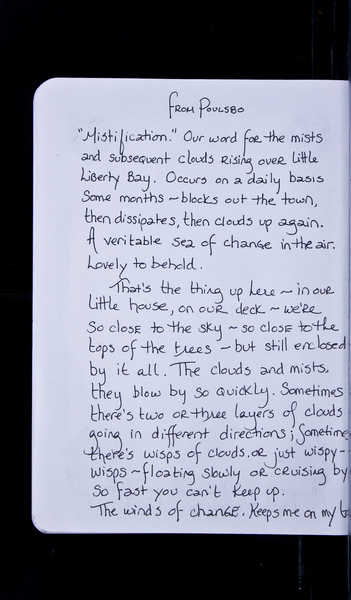 from Poulsbo
"Mistification." Our word for the mists
and subsequent clouds rising over little
Liberty Bay. Occurs on a daily basis
some months ~ blocks out the town,
then dissipates, then clouds up again.
A veritable sea of change in the air.
Lovely to behold.
That's the thing up here ~ in our
little house, on our deck ~ we're
so close to the sky ~ so close to the
tops of the trees ~ but still enclosed
by it all. The clouds and mists,
they blow by so quickly. Sometimes
there's two or three layers of clouds
going in different directions; Sometime
there's wisps of clouds, or just wispy-
wisps ~ floating slowly or cruising by
so fast you can't keep up.
The winds of change. Keeps me on my